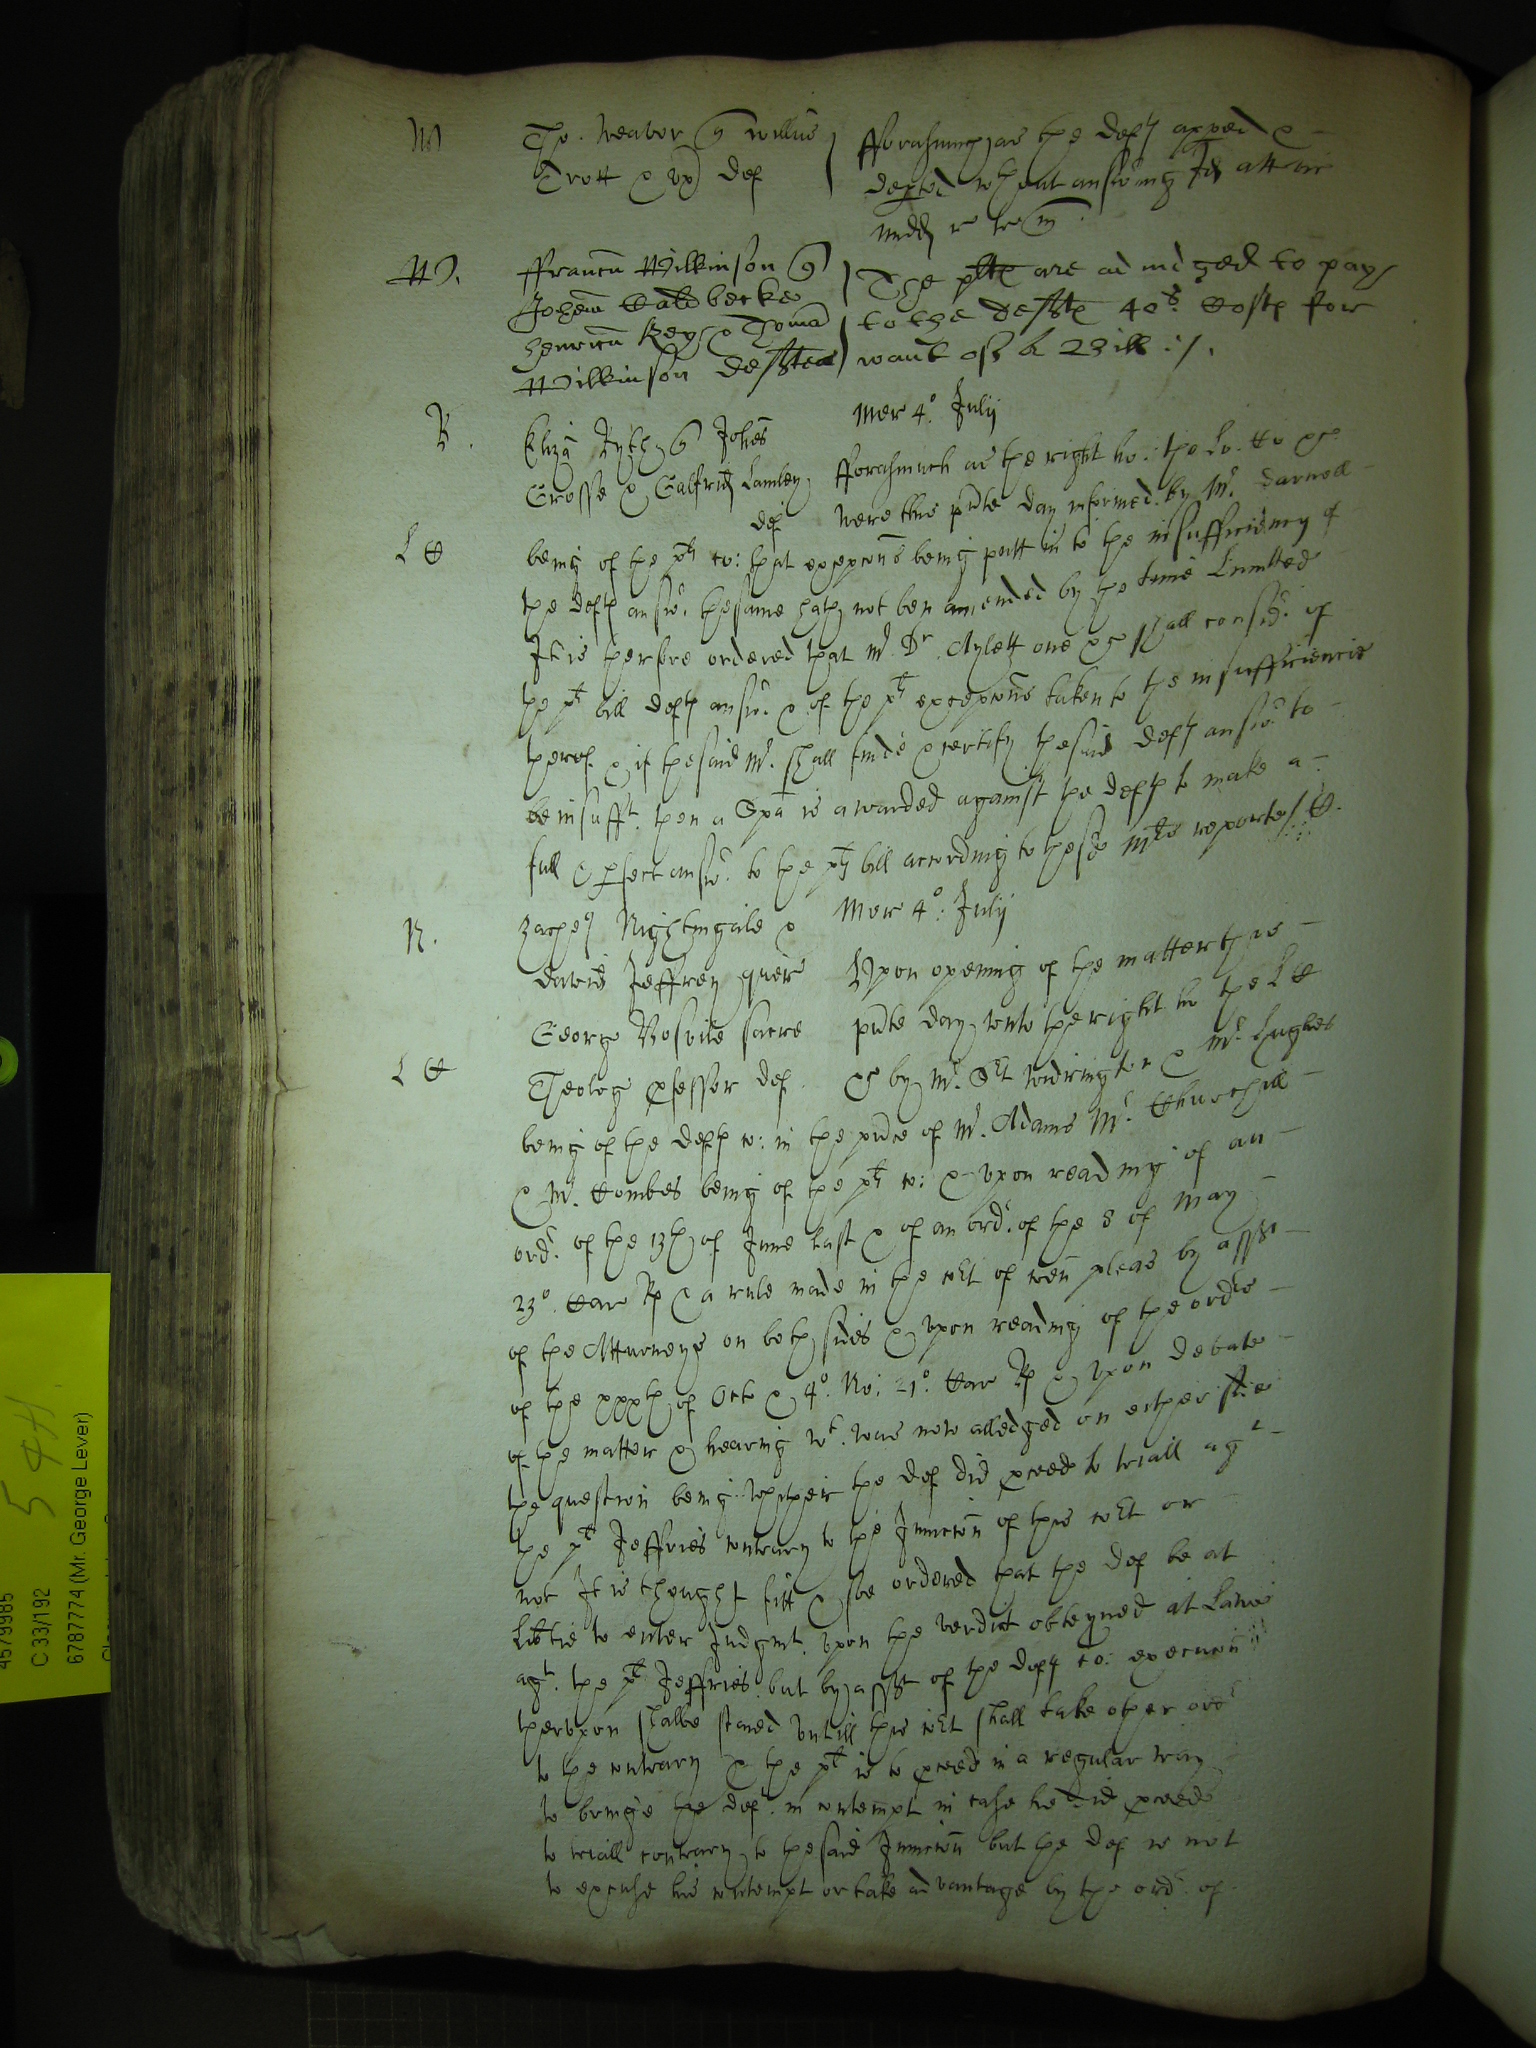 W Tho. Weaver q{uer} Willus
Trott & ux) def
fforasmuch as the deft apped &
depted wthout answring Jdeo attach
midd r~
W. ffrancus Wilkinson q
Johem
Henricu Key & Thoma
Wilkinson defftes
The pltes are adiudged to pay
to the defftes 40s. Costes for
want of A Bill ./.
R. Eliza Ryth q Johes
Grosse & Galfrid Lamley
def
Mer 4o. July
fforasmuch as the right ho: the Lo. &c
were this pnte day informed by Mr Darnell
L C being of the plts co: that excepcons being putt in to the insufficiency of
the defts answ. the same hath not ben amended by the time Limitted
It is therfore ordered that Mr. Dr. Aylett one &c shall consider of
the plts bill defts answ. & of the plts excepcons taken to the insufficiencie
therof & if the said Mr. shall finde & certifie the said defts answ to
be insufft. then a Spa is awarded against the deft to make a
full & pfect answ. to the plts bill according to the sd Mrs reporte/
N. Nightingale &
David Jeffrey quer
George Rosvile sacre
L C Theolog pfessor def
Mer 4o. July
Upon opening of the matter this
pnte day unto the right ho the L C
&c by Mr. Widrington & Mr. Hughes
being of the defts co: in the pnce of Mr. Adams Mr. Churchill
& Mr. Combes being of the plts co: & upon reading of an
ordr. of the 13th of June last & of an ordr. of the 8 of May
23o. Car R & a rule made in the cort of comon pleas by asst
of the Atturneys on both sides & upon reading of the ordrs
of the xxxth of Octo & 4o. No: 21o. Car R & upon debate
of the matter & hearing wt. was now alledged on either side
the question being whether the def did pceed to triall agt
the plt Jeffries contrary to the Iniuncon of this cort or
not It is thought fitt & soe ordered that the def be at
Libtie to enter Judgmt. upon the verdict obteyned at Lawe
agt. the plt Jeffries but by asst of the defts co: execucon
therupon shalbe stayed untill this cort shall take other ordr
to the contrary & the plt is to pceed in a regular way
to bringe the def. in contempt in case he did pceed
to triall contrary to the said Iniuncon but the def is not
to excuse his contempt or take advantage by the ordr. of
54H
4579985
C 33/192
6787774 (Mr. George Lever)